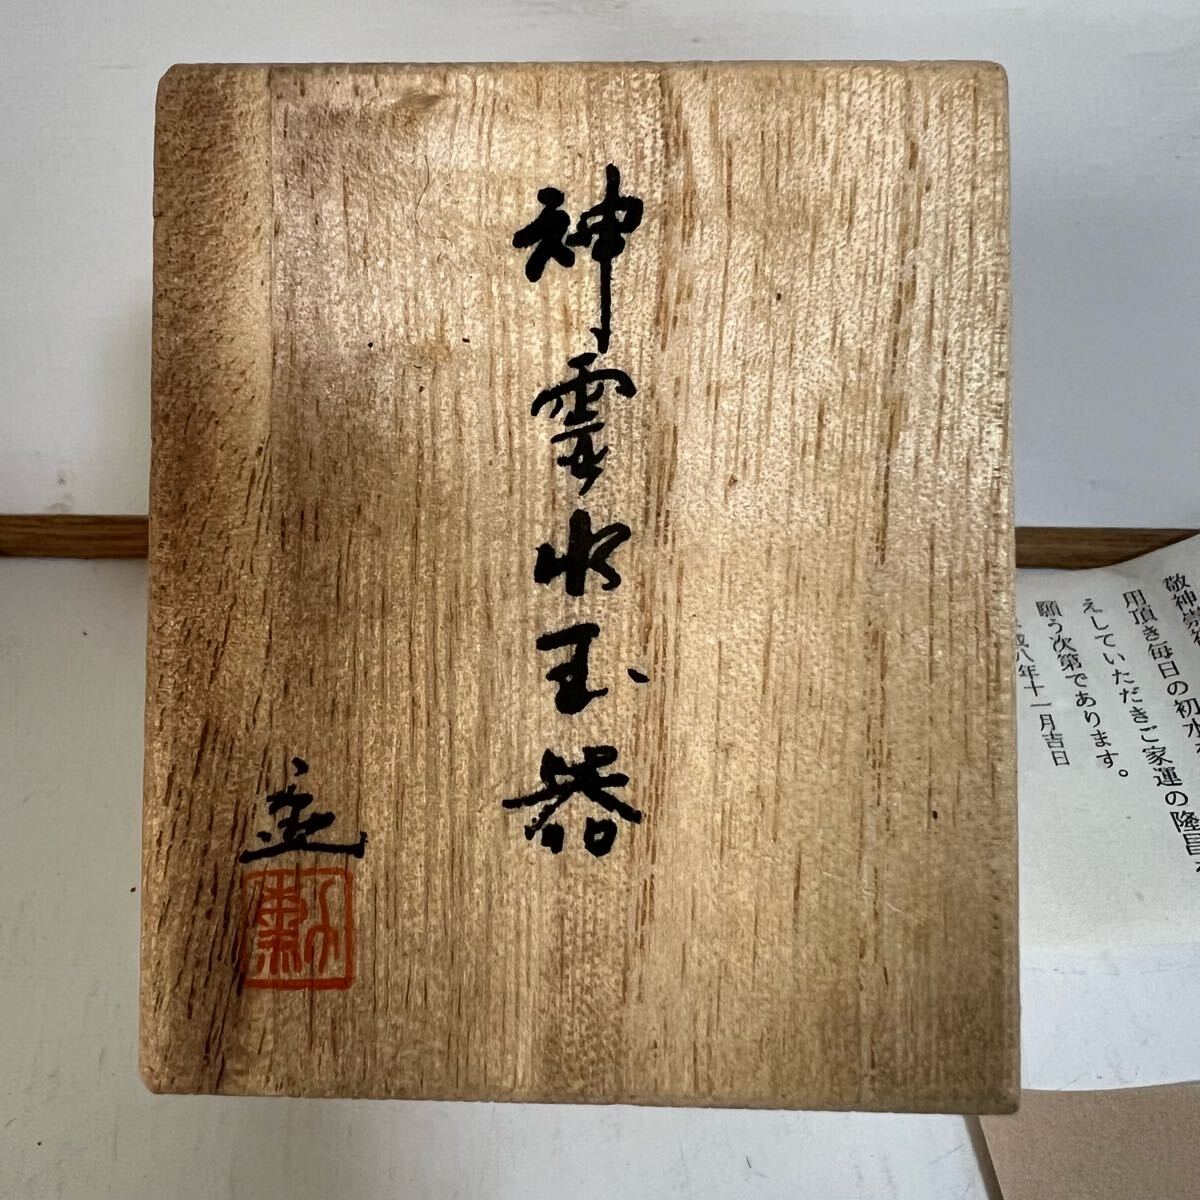 神霊水玉器
勲
敬神崇
用頂き毎日の初水
えしていただきご家運の隆昌
願う次第であります。
成八年十一月吉日